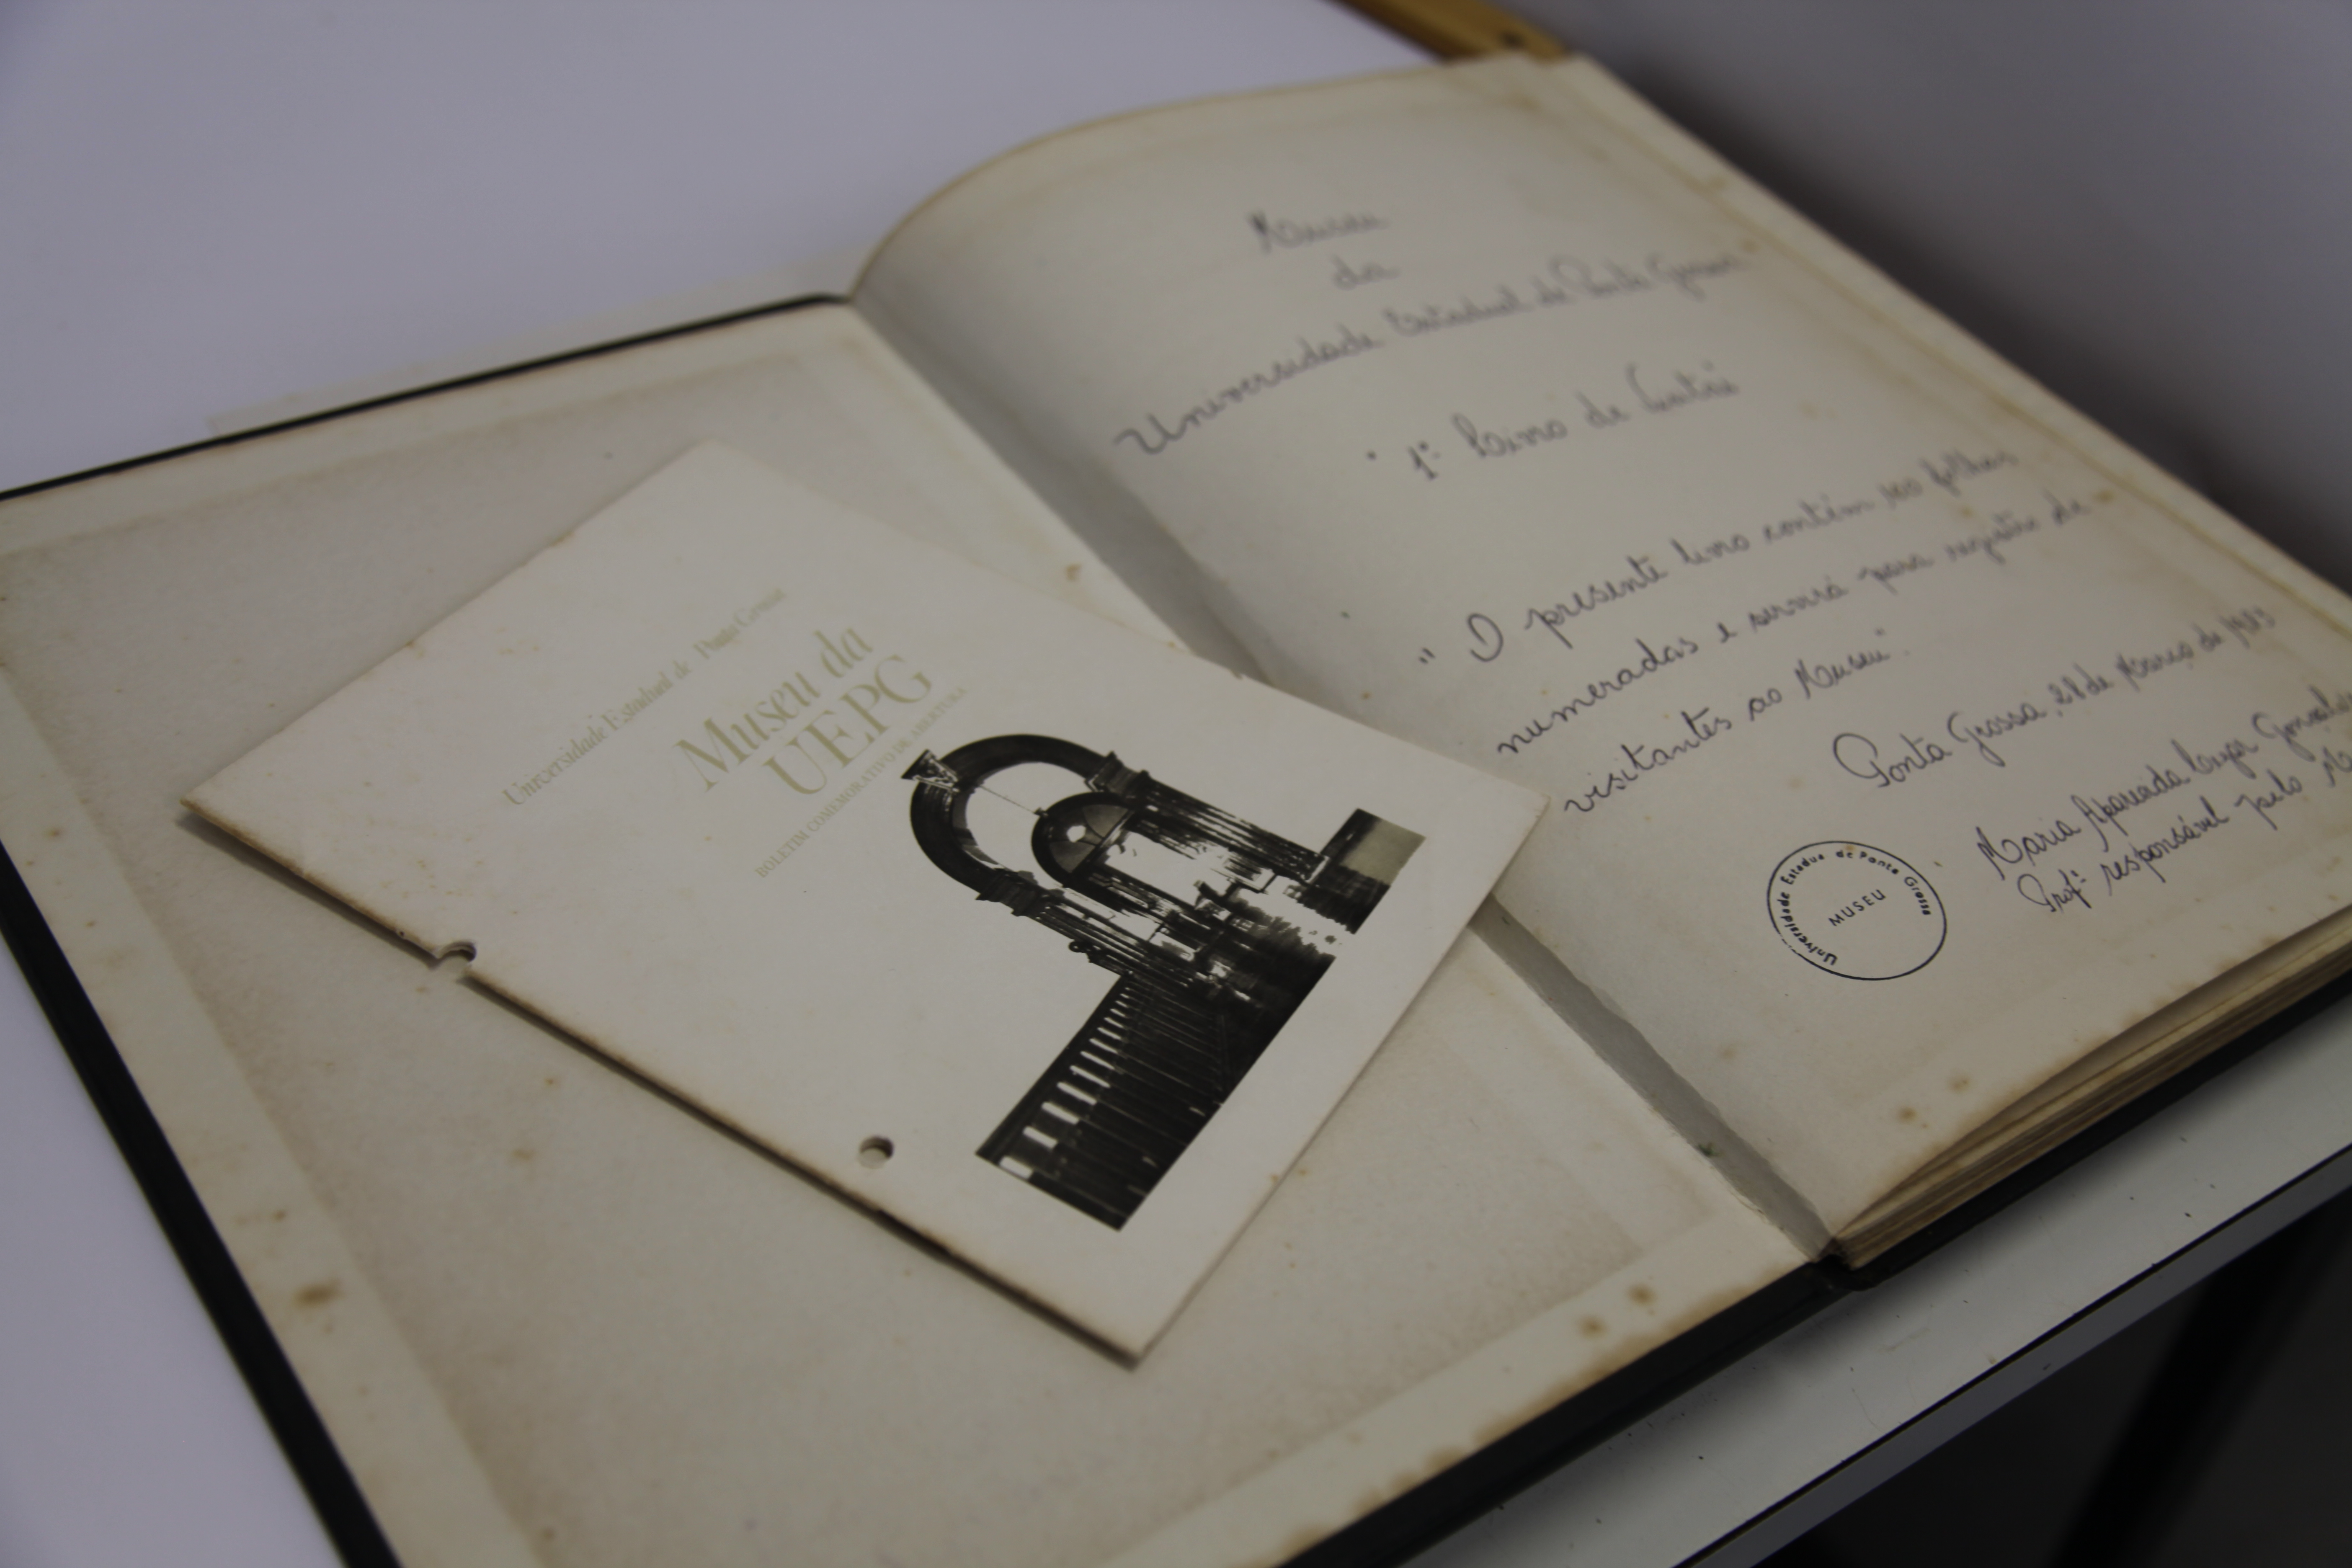 Universidade Estadual de Ponta Grossa
Museu da
UEPG
BOLETIM COMEMORATIVO DE ABERTURA
Museu
da
Universidade Estadual de Ponta Grossa
1º Livro de
" O presente livro contém 100 folhas
numeradas e servirá para registro de
visitantes ao Museu".
Ponta Grossa, 28 de Março de 1983
Maria Aparecida
Profª responsável pelo
Universidade Estadual de Ponta Grossa
MUSEU